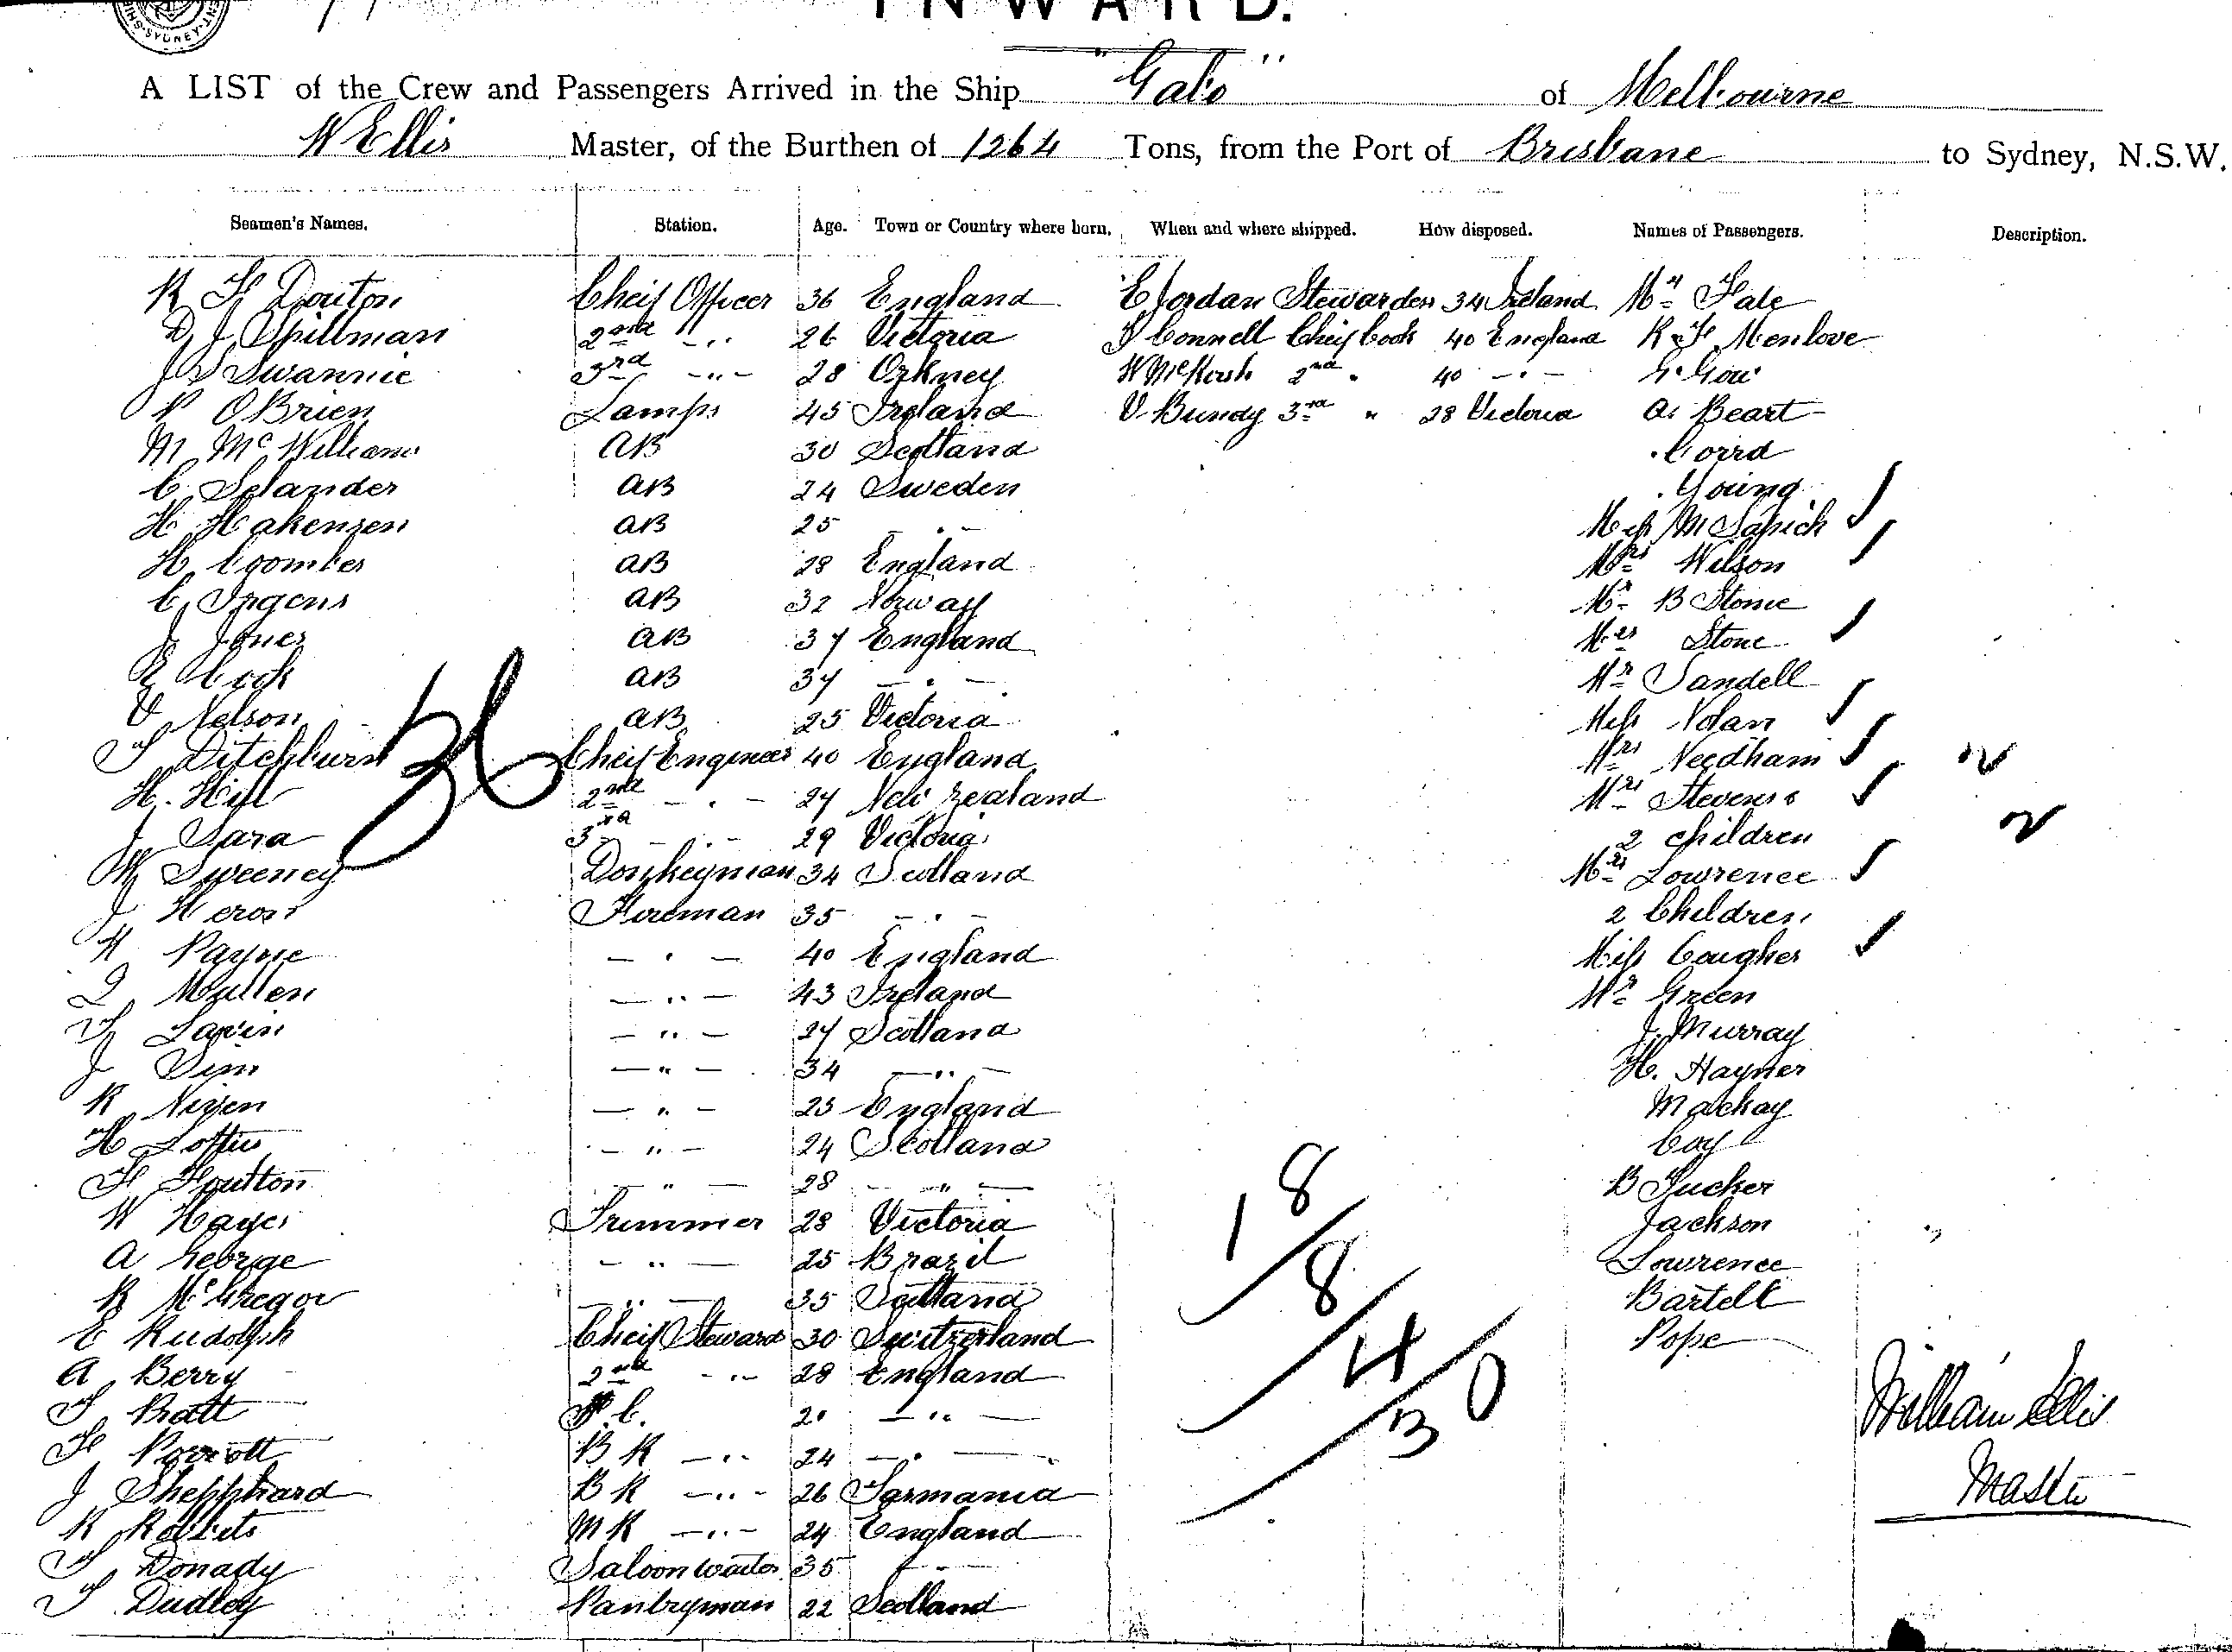 INWARD.
A LIST of the Crew and Passengers Arrived in the Ship "Gabo" of Melbourne
W Ellis Master, of the Burthen of 1264 Tons, from the Port of Brisbane to Sydney, N.S.W.
Seamen's Names. Station. Age. Town or Country where born. When and where shipped. How disposed. Names of Passengers. Description.
R F Douton Cheif Officer 36 England E Jordan Stewardess 34 Ireland Mr Fale
D J Spillman 2nd " 26 Victoria Connell Cheif Cook 40 England R F Menlove
J S Swannie 3rd -"- 28 Orkney 2nd " 40 -"- G Gow
P OBrien Lamps 45 Ireland V Bundy 3rd " 28 Victoria A. Beart
M McWilliams AB 30 Scotland
C Selander AB 24 Sweden Young
H Hakensen AB 25 - " - Miss M
H Coombes AB 28 England Mrs Wilson
C Irgens AB 32 Norway Mr B Stone
J Jones AB 37 England Mrs Stone
E Cook AB 34 - " - Mr Sandell
V Nelson AB 25 Victoria Miss Nolan
T Ditchburn Cheif Engineer 40 England Mrs Needham
H. Hill 2nd - " - 27 New Zealand Mrs Stevens
J Sara 3rd - " - 29 Victoria 2 children
W Sweeney Donkeyman 34 Scotland Mrs Lowrence
J Heron Fireman 35 - " - 2 Children
H Payne - " - 40 England Miss Cougher
Mullen - " - 43 Ireland Mr Green
Lavin - " - 27 Scotland J. Murray
J Sim - " - 34 - " - H. Hayner
R Niven - " - 23 England Mackay
H Loftus - " - 24 Scotland Coy
F Foutton - " - 28 - " - B Tucker
W Hayes Trimmer 28 Victoria Jackson
A George - " - 25 Brazil Lowrence
R McGregor - " - 35 Scotland Bartell
E Rudolph Cheif Steward 30 Switzerland Pope
A Berry 2nd - " - 28 England
T Pratt 20 - " -
F Parrott B R - " - 24 - " -
J Shepphard B R - " - 26 Tasmania
R Roberts M R - " - 24 England
T Donady Saloon Waiter 35 - " -
T Dudley Pantryman 22 Scotland
36
18/8/4/0
13
William Ellis
Master